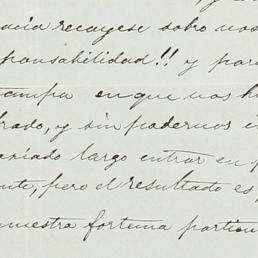 hacia recayese sobre nos
ponsabilidad!! y para
campa en que nos h
brado, y sin podernos e
masiado largo entrar en p
nte, pero el resultado es,
nuestra fortuna particu